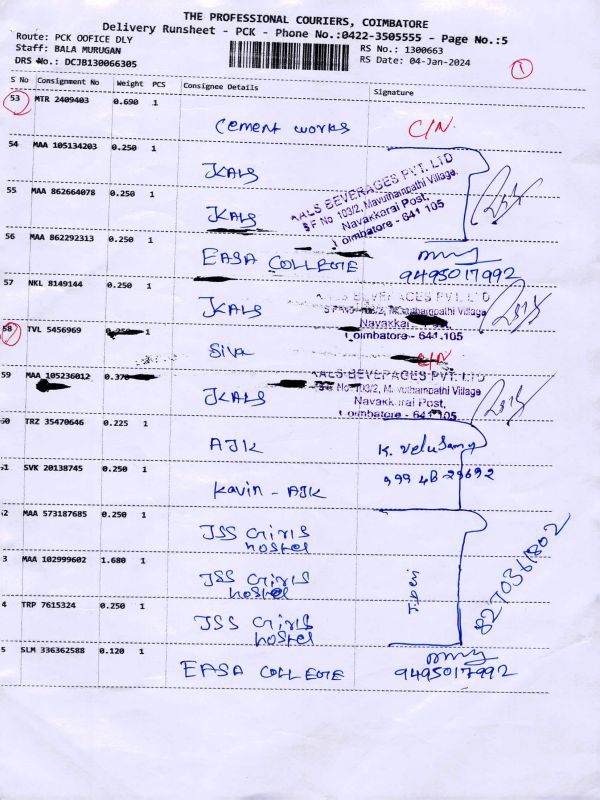 THE PROFESSIONAL COURIERS, COIMBATORE
Delivery Runsheet - PCK - Phone No.:0422-3505555 - Page No.:5
Route: PCK OOFICE DLY
Staff: BALA MURUGAN
RS No.: 1300663
DRS No.: DCJB130066305
RS Date: 04-Jan-2024
1
S No Consignment No Weight PCS Consignee Details Signature
53 MTR 2409403 0.690 1
Cement works C/N.
54 MAA 105134203 0.250 1
JKALS
KALS BEVERAGES PVT. LTD
S F No 103/2, Mavuthampathi Village,
Navakkarai Post,
Coimbatore - 641 105
55 MAA 862664078 0.250 1
JKALS
56 MAA 862292313 0.250 1
EASA COLLEGE
9495017992
57 NKL 8149144 0.250 1
JKALS
KALS BEVERAGES PVT. LTD
S F No 103/2, Mavuthampathi Village
Navakkarai Post,
Coimbatore - 641 105
58 TVL 5456969 0.250 1
Siva C/N
59 MAA 105236012 0.370
JKALS
KALS BEVERAGES PVT. LTD
S F No 103/2, Mavuthampathi Village
Navakkarai Post,
Coimbatore - 641 105
60 TRZ 35470646 0.225 1
AJK K. Velusamy
61 SVK 20138745 0.250 1
Kavin - AJK
62 MAA 573187685 0.250 1
JSS Girls
hostel
3 MAA 102999602 1.680 1
JSS Girls
hostel
T.Devi
8270361802
4 TRP 7615324 0.250 1
JSS Girls
hostel
5 SLM 336362588 0.120 1
EASA COLLEGE
9495017992